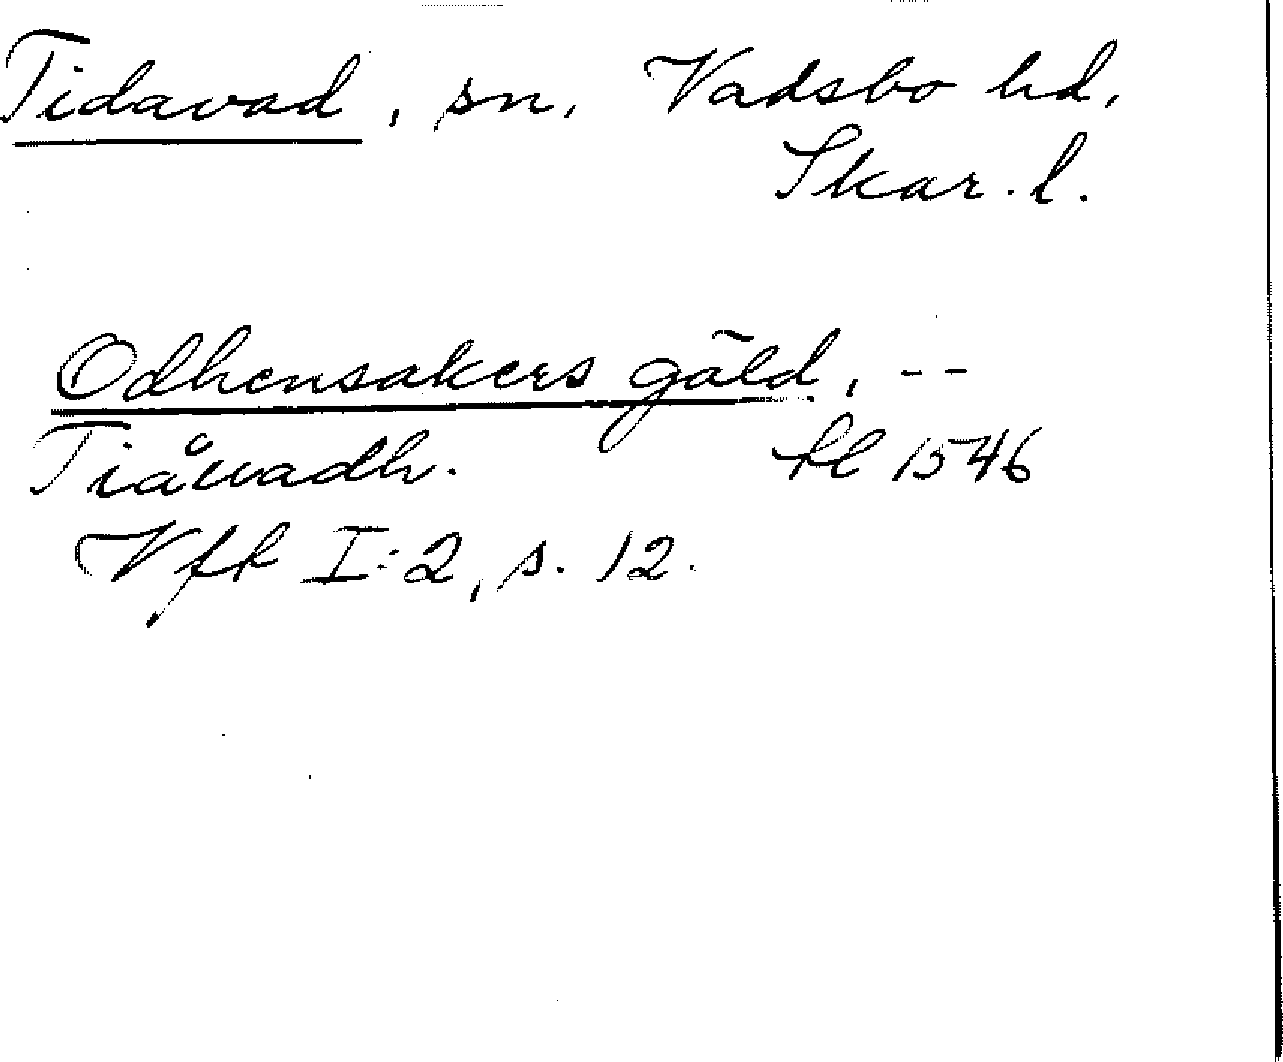 Tidavad, sn, Vadsbo hd,
Skar. l.
Odhensakers gäld, --
Tiåvadh. fl 1546
Vfk I:2, s. 12.